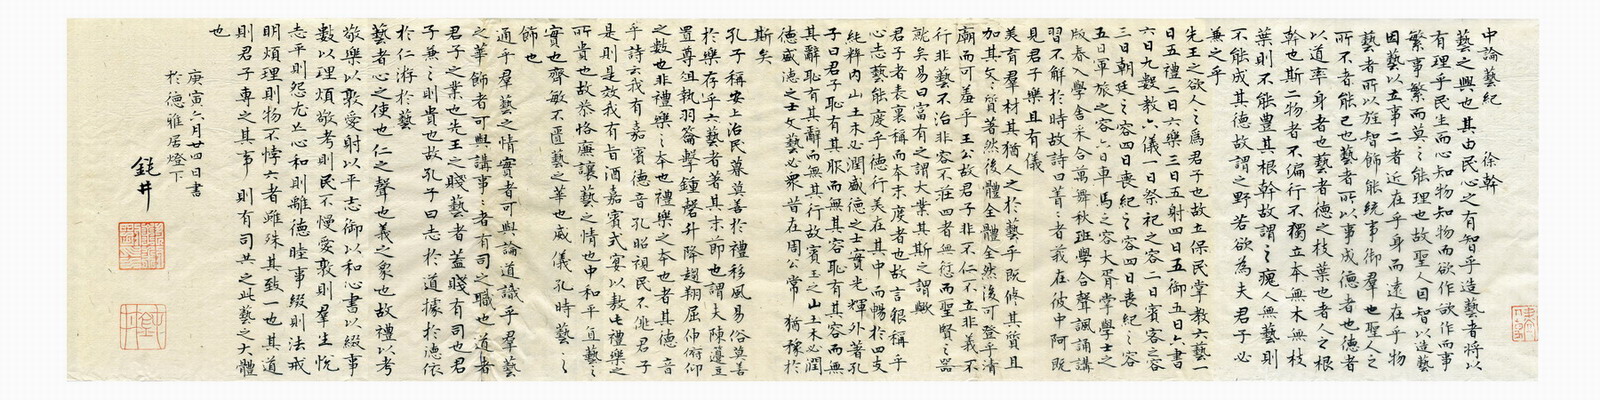 中論藝紀　徐幹
藝之興也其由民心之有智乎造藝者將以
有理乎民生而心知物知物而欲作欲作而事
繁事繁而莫之能理也故聖人因智以造藝
因藝以立事二者近在乎身而遠在乎物
藝者所以旌智飾能統事御群也聖人之
所不者能已也藝者所以事成德者也德者
以道率身者也藝者德之枝葉也者人之根
幹也斯二物者不偏行不獨立本無木無枝
葉則不能豊其根幹故謂之瘣人無藝則
不能成其德故謂之野若欲為夫君子必
兼之乎
先王之欲人之為君子也故立保民掌教六藝一
日五禮二日六樂三日五射四日五御五日六書
六日九數教六儀一日祭祀之容二日賓客之容
三日朝廷之容四日喪紀之容四日喪紀之容
五日軍旅之容六日車馬之容大胥掌學士之
版春入學舍采合萬舞秋班學合聲諷誦講
習不解於時故詩曰菁々者莪在彼中阿既
見君子樂且有儀
美育羣材其猶人之於藝乎既脩其質且
加其文々質著然後體全體全然後可登乎清
廟而可羞乎王公故君子非仁不立非義不
行非藝不治非容不莊四者無愆而聖賢之器
就矣易曰富有之謂大業其斯之謂歟
君子者表裏稱而本末度者也故言貌稱乎
心志藝能度乎德行美在其中而暢於四支
純粹內山土木必潤盛德之士實光輝外著孔
子曰君子恥有其服而無其容恥有其容而無
其辭恥有其辭而無其行故寶玉之山土木必潤
德盛德之士文藝必眾昔在周公常猶豫於
斯矣
孔子稱安上治民莫善於禮移風易俗莫善
於樂存乎六藝者著其末節也謂夫陳籩豆
置尊俎執羽籥擊鍾磬升降趨翔屈伸俯仰
之數也非禮樂之本也禮樂之本也者其德音
乎詩云我有嘉賓德音孔昭視民不佻君子
是則是效我有旨酒嘉賓式宴以敖此禮樂之
所貴也故恭恪廉讓藝之情也中和平直藝之
實也齊敏不匱藝之華也威儀孔時藝之
飾也
通乎羣藝之情實者可與論道識乎羣藝
之華飾者可與講事々者有司之職也道者
君子之業也先王之賤藝者蓋賤有司也君
子兼之則貴也故孔子曰志於道據於德依
於仁游於藝
藝者心之使也仁之聲也義之象也故禮以考
敬樂以敦愛射以平志御以和心書以綴事
數以理煩敬考則民不慢愛敦則羣生悅
志平則怨尤亡心和則離德睦事綴則法戒
明煩理則物不悖六者雖殊其致一也其道
則君子專之其事則有司共之此藝之大體
也
庚寅六月廿四日書
於德雅居燈下